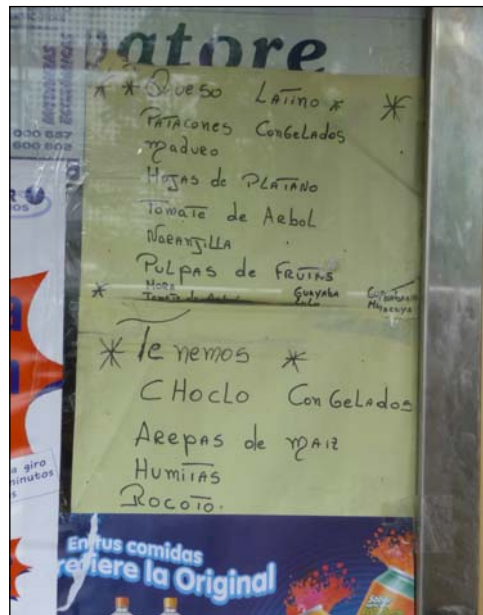 atore
* * Queso Latino * *
Patacones Congelados
Maduro
Hojas de Platano
Tomate de Arbol
Naranjilla
Pulpas de Frutas
* Mora Guayaba
Tomate de Arbol Lulo Maracuya
* Tenemos *
CHoclo Congelados
Arepas de Maiz
Humitas
Rocoto.
a giro
minutos
En tus comidas
refiere la Original